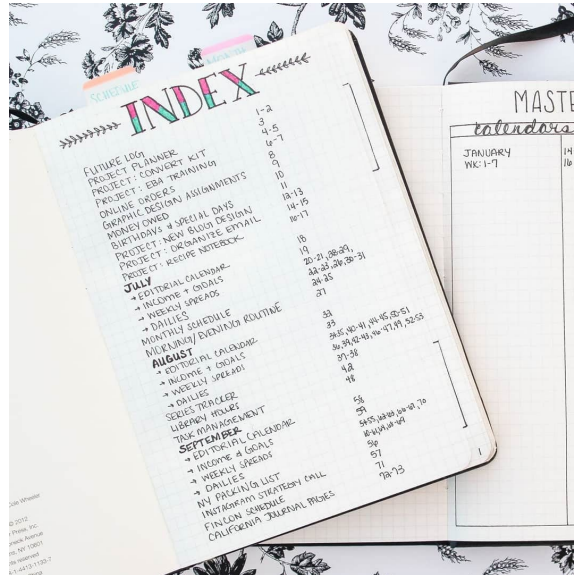 SCHEDULE
MONTH
INDEX
FUTURE LOG 1-2
PROJECT PLANNER 3
PROJECT: CONVERT KIT 4-5
PROJECT: EBA TRAINING 6-7
ONLINE ORDERS 8
GRAPHIC DESIGN ASSIGNMENTS 9
MONEY OWED 10
BIRTHDAYS & SPECIAL DAYS 11
PROJECT: NEW BLOG DESIGN 12-13
PROJECT: ORGANIZE EMAIL 14-15
PROJECT: RECIPE NOTEBOOK 16-17
JULY
→ EDITORIAL CALENDAR 18
→ INCOME + GOALS 19
→ WEEKLY SPREADS 20-21, 28-29,
→ DAILIES 22-23, 26, 30-31
MONTHLY SCHEDULE 24-25
MORNING/EVENING ROUTINE 27
AUGUST
→ EDITORIAL CALENDAR 32
→ INCOME + GOALS 33
→ WEEKLY SPREADS 34-35, 40-41, 44-45, 50-51
→ DAILIES 36, 39, 42-43, 46-47, 49, 52-53
SERIES TRACKER 37-38
LIBRARY HOURS 42
TASK MANAGEMENT 48
SEPTEMBER
→ EDITORIAL CALENDAR 58
→ INCOME & GOALS 59
→ WEEKLY SPREADS
→ DAILIES
NY PACKING LIST 56
INSTAGRAM STRATEGY CALL 57
FINCON SCHEDULE 71
CALIFORNIA JOURNAL PAGES 72-73
1
MASTE
calendars
JANUARY 14
WK: 1-7 16
Cole Wheeler
© 2012
Press, Inc.
Avenue
NY 10601
reserved
-1-4413-1133-7